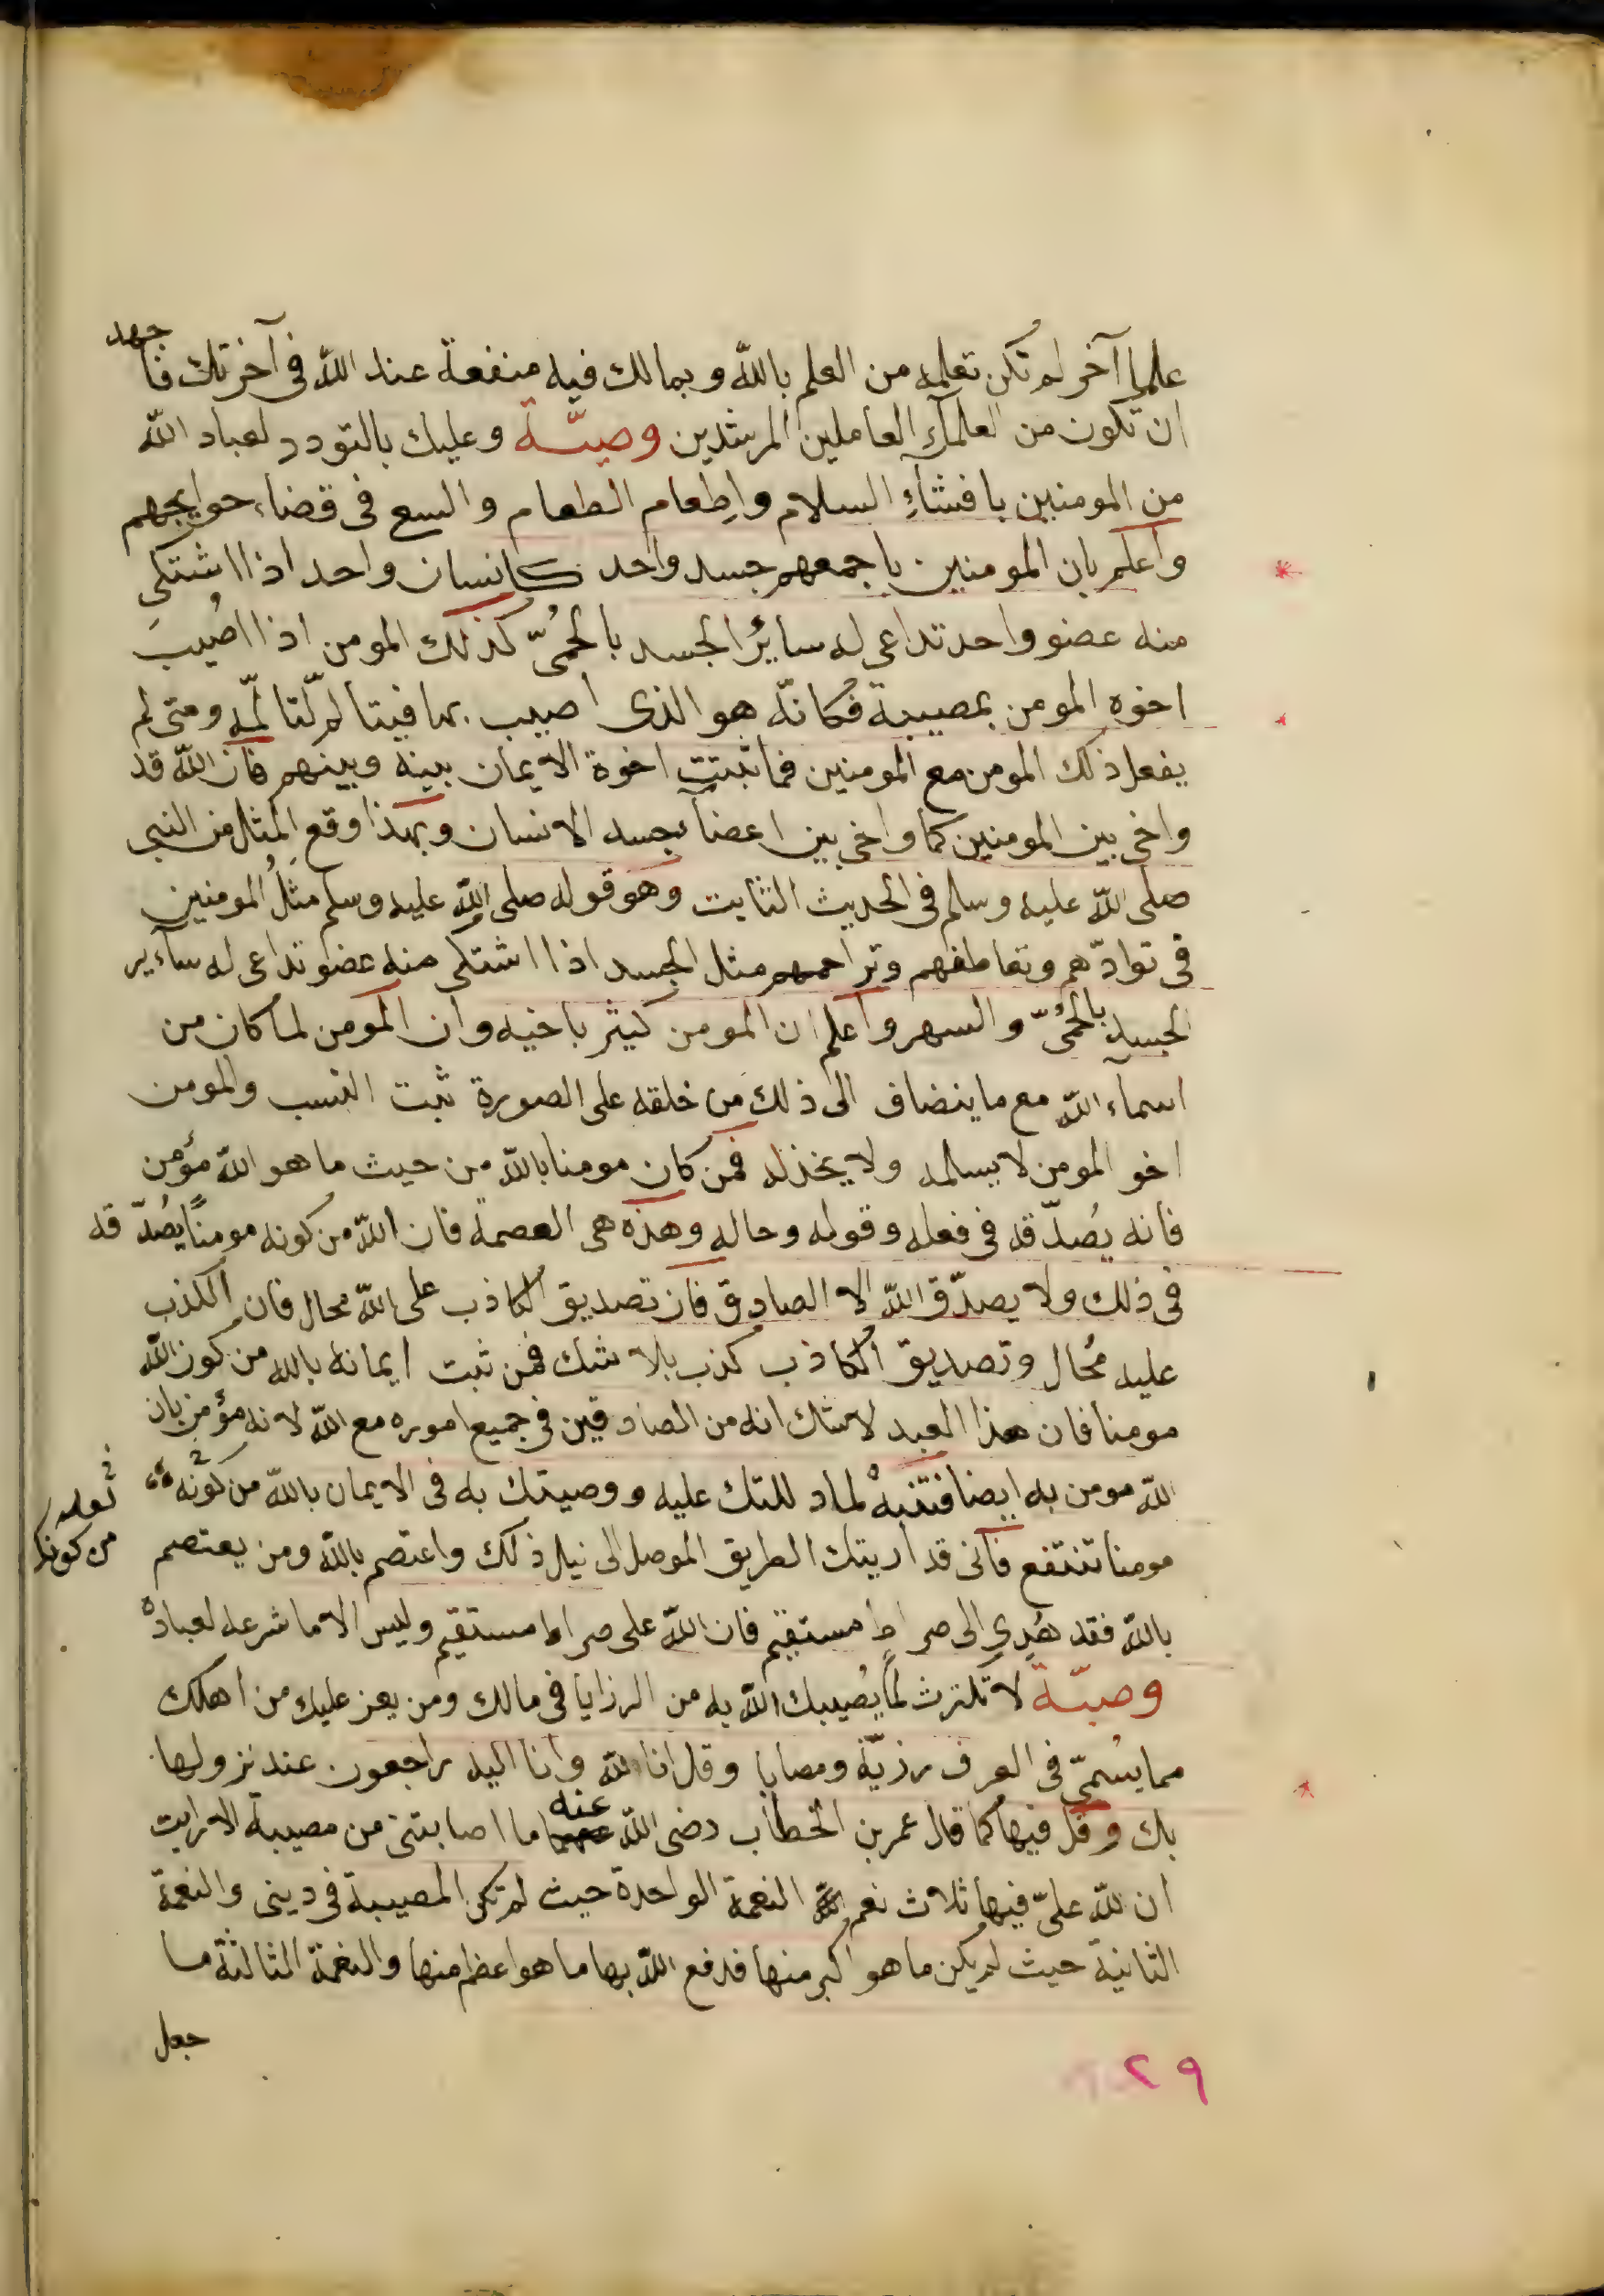 علما آخر لم تكن تعلمه من العلم بالله وبمالك فيه منفعة عند الله فى آخرتك فاجهد
ان تكون من العلمآء العاملين المرشدين وصيّة وعليك بالتودد لعباد الله
من المومنين بافشآءِ السلام واِطعام الطعام والسع فى قضاء حوايجهم
واعلم بان المومنين باجمعهم جسد واحد كانسان واحد اذا اشتكى
منه عضو واحد تداعى له سايرُ الجسد بالحُمىّ كذلك المومن اذا اُصُيبَ
اخوه المومن بمصيبة فكانّه هو الذى اصيب بها فيتالم لتالمّه ومتى لم
يفعل ذلك المومن مع المومنين فما ثبتت اخوة الايمان بينه وبينهم فان الله قد
واخى بين المومنين كما واخى بين اعضآء جسد الانسان وبهذا وقع المثل من النبى
صلى الله عليه وسلم فى الحديث الثابت وهو قوله صلى الله عليه وسلم مثلُ المومنين
فى توادّهم وتعاطفهم وتراحمهم مثل الجسد اذا اشتكى منه عضو تداعى له سآءير
الجسد بالحُمىّ والسهر واعلم ان المومن كيثر باخيه وان المومن لما كان من
اسمآء الله مع ما ينضاف الى ذلك من خلقه على الصورة ثبت النسب والمومن
اخو المومن لا يسلمه ولا يخذله فمن كان مومنا بالله من حيث ما هو الله مؤمن
فانه يُصدّقه فى فعله وقوله وحاله وهذه هى العصمة فان الله من كونه مومنًا يصُدّقه
فى ذلك ولا يصدّق الله الا الصادق فان تصديق الكاذب على الله محال فان الكذب
عليه مُحال وتصديق الكاذب كذب بلا شك فمن ثبت ايمانه بالله من كون الله
مومنا فان هذا العبد لا شك انه من الصادقين فى جميع اموره مع الله لانه مؤمن بان
الله مومن به ايضا فتنبهْ لماد للتك عليه ووصيتك به فى الايمان بالله من كونه
من كونك
مومنا تنتفع فآنى قد اريتك الطريق الموصل الى نيل ذلك واعتصم بالله ومن يعتصم
بالله فقد هُدِي الى صراطٍ مستقيم فان الله على صراط مستقيم وليس الا ما شرعه لعباده
وصيّة لا تكترث لمايُصيبك الله به من الرزايا فى مالك ومن يعز عليك من اهلك
مما يسُمىّ فى العرف رزيّة ومصابا وقل انا لله وانا اليه راجعون عند نزولها
بك وقل فيها كما قال عمر بن الخطاب رضى الله عنه ما اصابتنى من مصيبة الا رايت
ان لله علىّ فيها ثلاث نعم النعمة الواحدة حيث لم تكن المصيبة فى دينى والنعمة
الثانية حيث لم يكن ما هو اكبر منها فدفع الله بها ما هو اعظم منها والنعمة الثالثة ما
جعل
٢٩